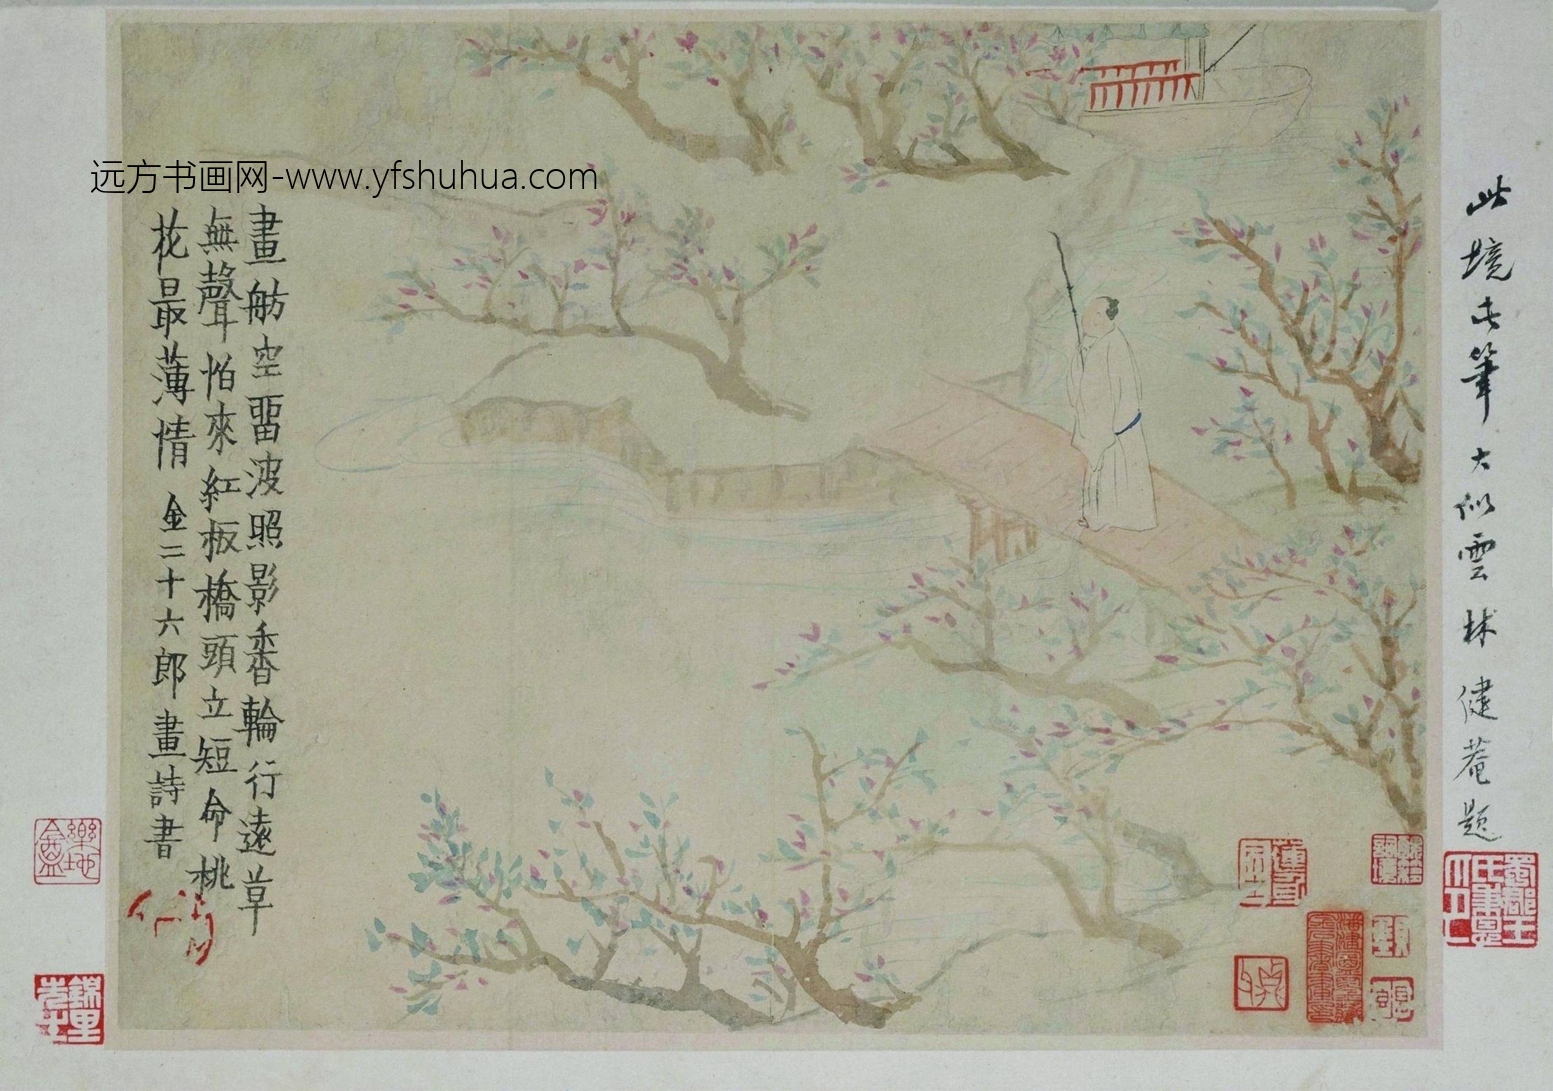 远方书画网-www.yfshuhua.com
畫舫空畱波照影香輪行遠草
無聲怕來紅板橋頭立短命桃
花最薄情 金二十六郎畫詩書
此境此筆大似雲林 健菴題